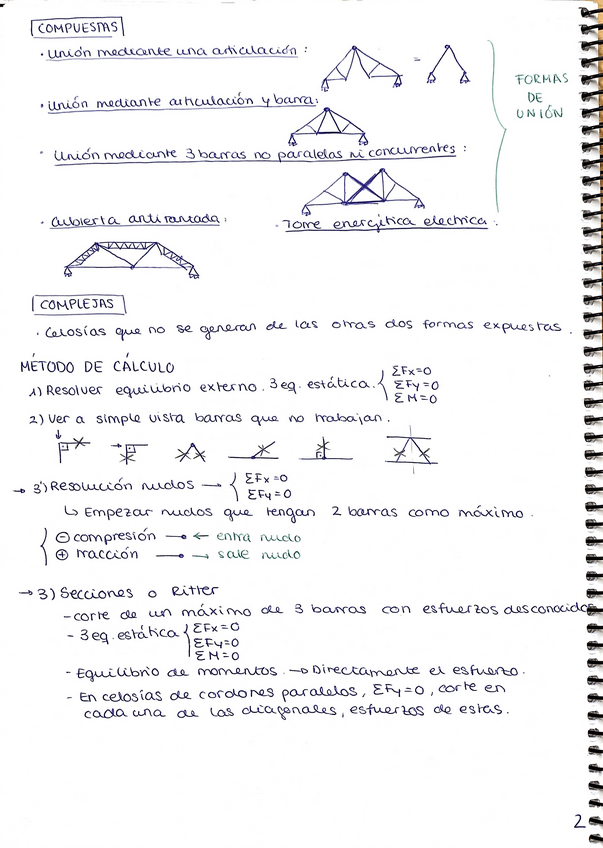 COMPUESTAS
· Unión mediante una articulación :
=
· Unión mediante articulación y barra:
FORMAS
DE
UNIÓN
· Unión mediante 3 barras no paralelas ni concurrentes :
· Cubierta antirantada :
- Torre energética electrica :
COMPLEJAS
· Celosías que no se generan de las otras dos formas expuestas.
MÉTODO DE CÁLCULO
1) Resolver equilibrio externo. 3 eq. estática. { ΣFx=0
ΣFy=0
ΣM=0
2) Ver a simple vista barras que no trabajan.
→ 3') Resolución nudos → { ΣFx=0
ΣFy=0
↳ Empezar nudos que tengan 2 barras como máximo.
⊖ compresión ← entra nudo
⊕ tracción → sale nudo
→ 3) Secciones o Ritter
- corte de un máximo de 3 barras con esfuerzos desconocidos
- 3 eq. estática { ΣFx=0
ΣFy=0
ΣM=0
- Equilibrio de momentos. → Directamente el esfuerzo.
- En celosías de cordones paralelos, ΣFy=0, corte en
cada una de las diagonales, esfuerzos de estas.
2